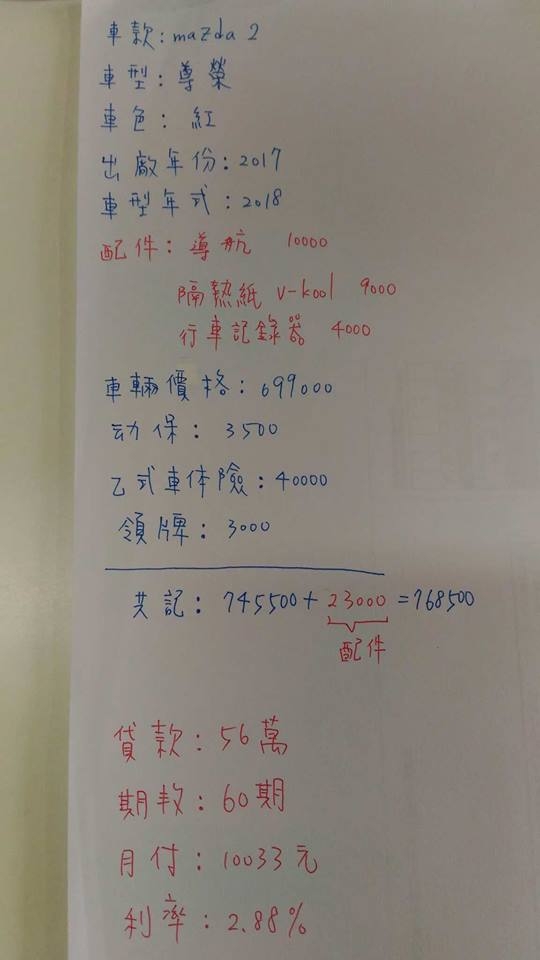 車款：mazda 2
車型：尊榮
車色：紅
出廠年份：2017
車型年式：2018
配件：導航 10000
隔熱紙 v-kool 9000
行車記錄器 4000
車輛價格：699000
动保：3500
乙式車体險：40000
領牌：3000
共記：745500+23000=768500
配件
貸款：56萬
期数：60期
月付：10033元
利率：2.88%